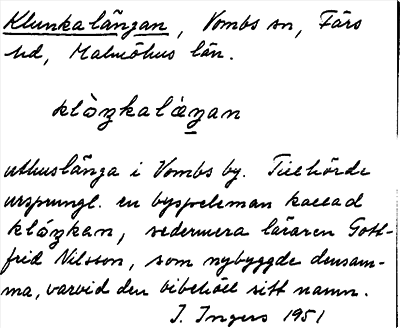 Klunkalängan, Vombs sn, Färs
hd, Malmöhus län.
klòŋkaláŋan
uthuslänga i Vombs by. Tillhörde
ursprungl. en byspeleman kallad
klóŋkan, sedermera läraren Gott-
frid Nilsson, som nybyggde densam-
ma, varvid den bibehöll sitt namn.
I. Ingers 1951